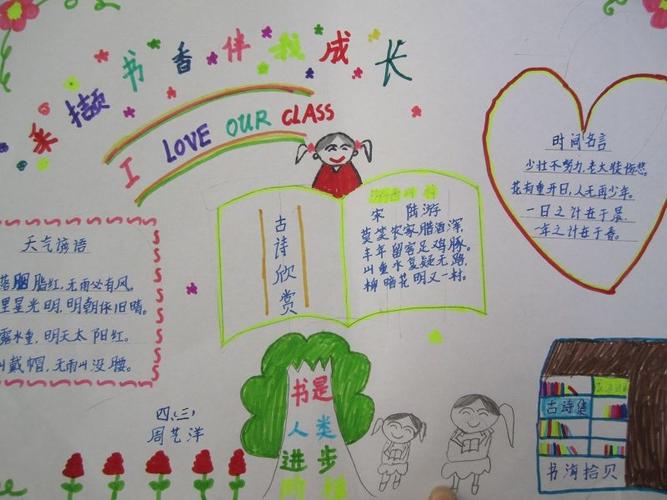 采撷书香伴我成长
I LOVE OUR CLASS
时间名言
少壮不努力,老大徒伤悲。
花有重开日,人无再少年。
一日之计在于晨,
一年之计在于春。
古诗欣赏
宋 陆游
莫笑农家腊酒浑,
丰年留客足鸡豚。
山重水复疑无路,
柳暗花明又一村。
天气谚语
落胭脂红,无雨必有风。
里星光明,明朝依旧晴。
露水重,明天太阳红。
山戴帽,无雨山没腰。
四.(三)
周艺洋
书是
人类
进步
阶梯
古诗集
书海拾贝